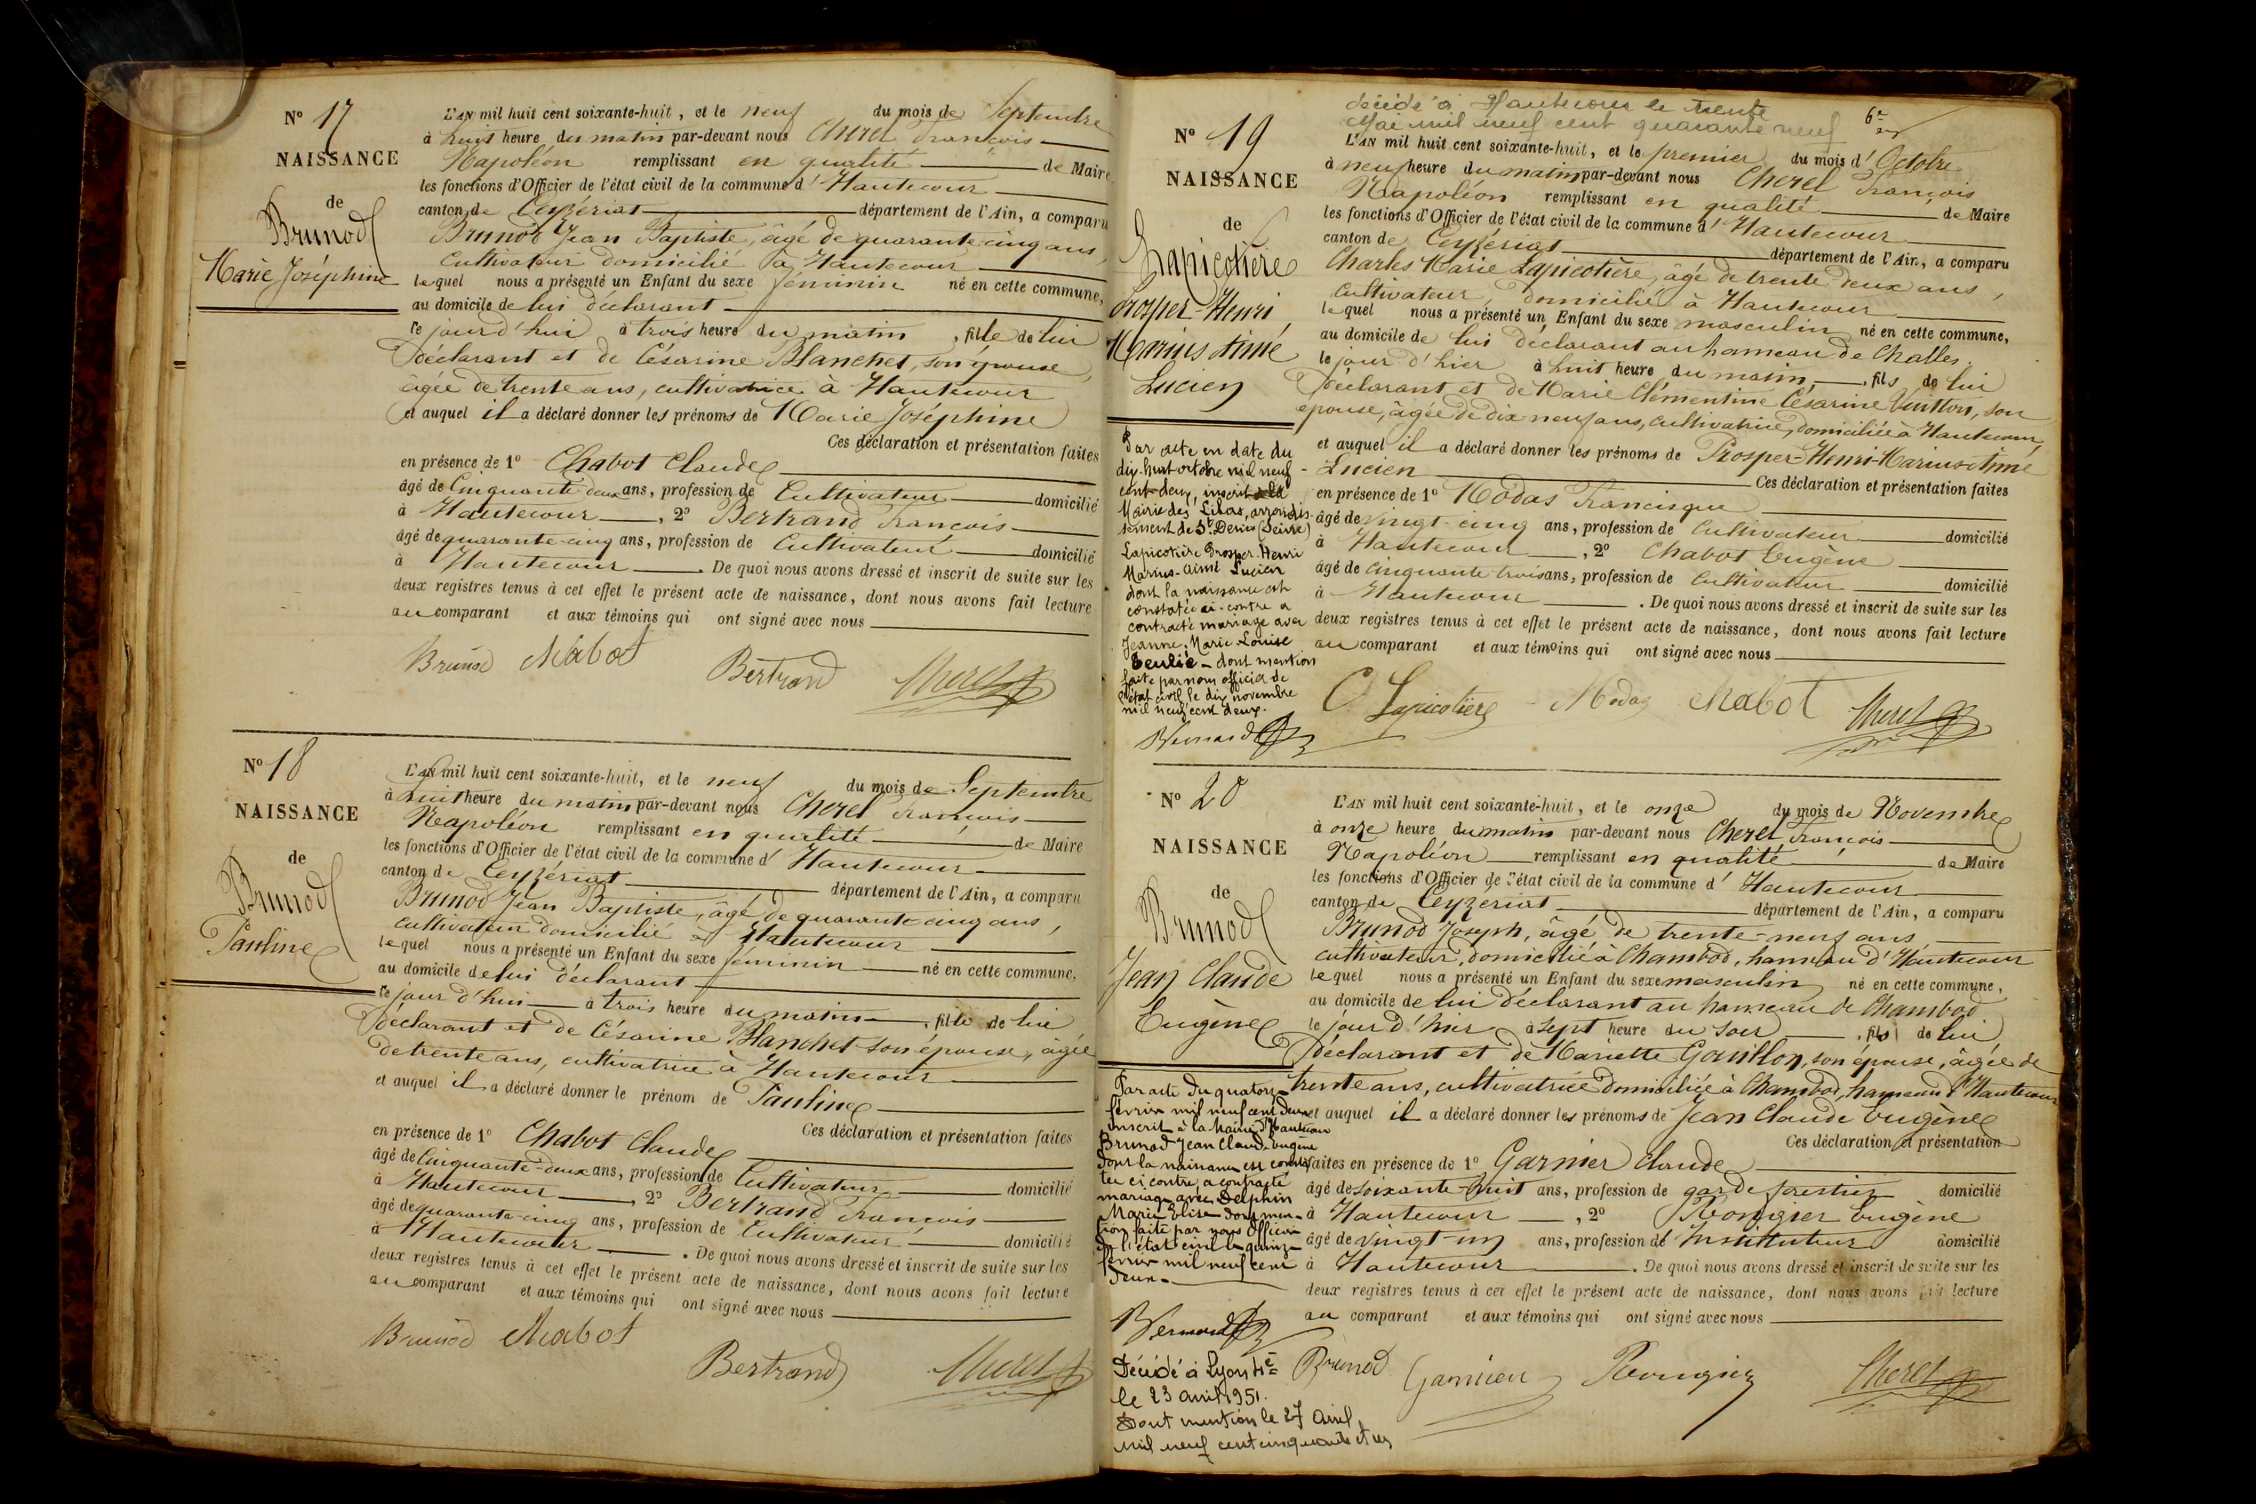 N° 17
NAISSANCE
de
Brunod
Marie Joséphine
L'AN mil huit cent soixante-huit, et le neuf du mois de Septembre
à huit heure du matin par-devant nous Cherel François
Napoléon remplissant en qualité de Maire
les fonctions d'Officier de l'état civil de la commune d'Hautecour
canton de Ceyzériat département de l'Ain, a comparu
Brunod Jean Baptiste, âgé de quarante-cinq ans,
cultivateur domicilié à Hautecour
lequel nous a présenté un Enfant du sexe féminin né en cette commune,
au domicile de lui déclarant
le jour d'hui à trois heure du matin, fille de lui
déclarant et de Césarine Blanchet, son épouse,
âgée de trente ans, cultivatrice à Hautecour
et auquel il a déclaré donner les prénoms de Marie Joséphine
Ces déclaration et présentation faites
en présence de 1° Chabot Claude
âgé de Cinquante deux ans, profession de Cultivateur domicilié
à Hautecour, 2° Bertrand François
âgé de quarante-cinq ans, profession de Cultivateur domicilié
à Hautecour. De quoi nous avons dressé et inscrit de suite sur les
deux registres tenus à cet effet le présent acte de naissance, dont nous avons fait lecture
au comparant et aux témoins qui ont signé avec nous
Brunod Chabot Bertrand Cherel
N° 18
NAISSANCE
de
Brunod
Pauline
L'AN mil huit cent soixante-huit, et le neuf du mois de Septembre
à huit heure du matin par-devant nous Cherel François
Napoléon remplissant en qualité de Maire
les fonctions d'Officier de l'état civil de la commune d'Hautecour
canton de Ceyzériat département de l'Ain, a comparu
Brunod Jean Baptiste, âgé de quarante-cinq ans,
cultivateur domicilié à Hautecour
lequel nous a présenté un Enfant du sexe féminin né en cette commune,
au domicile de lui déclarant
le jour d'hui à trois heure du matin, fille de lui
déclarant et de Césarine Blanchet son épouse, âgée
de trente ans, cultivatrice à Hautecour
et auquel il a déclaré donner le prénom de Pauline
Ces déclaration et présentation faites
en présence de 1° Chabot Claude
âgé de Cinquante-deux ans, profession de Cultivateur domicilié
à Hautecour, 2° Bertrand François
âgé de quarante-cinq ans, profession de Cultivateur domicilié
à Hautecour. De quoi nous avons dressé et inscrit de suite sur les
deux registres tenus à cet effet le présent acte de naissance, dont nous avons fait lecture
au comparant et aux témoins qui ont signé avec nous
Brunod Chabot Bertrand Cherel
décédé à Hautecour le trente
Mai mil neuf cent quarante neuf
N° 19
NAISSANCE
de
Lapicotière
Prosper-Henri
Marius Aimé
Lucien
L'AN mil huit cent soixante-huit, et le premier du mois d'Octobre
à neuf heure du matin par-devant nous Cherel François
Napoléon remplissant en qualité de Maire
les fonctions d'Officier de l'état civil de la commune d'Hautecour
canton de Ceyzériat département de l'Ain, a comparu
Charles Marie Lapicotière, âgé de trente deux ans,
cultivateur, domicilié à Hautecour
lequel nous a présenté un Enfant du sexe masculin né en cette commune,
au domicile de lui déclarant au hameau de Challes
le jour d'hier à huit heure du matin, fils de lui
déclarant et de Marie Clémentine Césarine Vuitton, son
épouse, âgée de dix neuf ans, cultivatrice, domiciliée à Hautecour,
et auquel il a déclaré donner les prénoms de Prosper-Henri-Marius Aimé
Lucien Ces déclaration et présentation faites
en présence de 1° Modas Francisque
âgé de vingt-cinq ans, profession de Cultivateur domicilié
à Hautecour, 2° Chabot Eugène
âgé de Cinquante-trois ans, profession de Cultivateur domicilié
à Hautecour. De quoi nous avons dressé et inscrit de suite sur les
deux registres tenus à cet effet le présent acte de naissance, dont nous avons fait lecture
au comparant et aux témoins qui ont signé avec nous
C. Lapicotière Modas Chabot Cherel
Par acte en date du
dix-huit octobre mil neuf
cent deux, inscrit à la
Mairie des Lilas, arrondis-
sement de St Denis (Seine)
Lapicotière Prosper-Henri
Marius-Aimé Lucien
dont la naissance est
constatée ci-contre a
contracté mariage avec
Jeanne, Marie-Louise
Teulié - dont mention
faite par nous officier de
l'état civil le dix novembre
mil neuf cent deux.
Bernard
N° 20
NAISSANCE
de
Brunod
Jean Claude
Eugène
L'AN mil huit cent soixante-huit, et le onze du mois de Novembre
à onze heure du matin par-devant nous Cherel François
Napoléon remplissant en qualité de Maire
les fonctions d'Officier de l'état civil de la commune d'Hautecour
canton de Ceyzeriat département de l'Ain, a comparu
Brunod Joseph, âgé de trente-neuf ans
cultivateur, domicilié à Chambod, hameau d'Hautecour
lequel nous a présenté un Enfant du sexe masculin né en cette commune,
au domicile de lui déclarant au hameau de Chambod
le jour d'hier à sept heure du soir, fils de lui
déclarant et de Mariette Gouillon, son épouse, âgée de
trente ans, cultivatrice domiciliée à Chambod, hameau d'Hautecour
et auquel il a déclaré donner les prénoms de Jean Claude Eugène
Ces déclaration et présentation
faites en présence de 1° Garnier Claude
âgé de soixante-huit ans, profession de garde forestier domicilié
à Hautecour, 2° Rongier Eugène
âgé de vingt-un ans, profession de Instituteur domicilié
à Hautecour. De quoi nous avons dressé et inscrit de suite sur les
deux registres tenus à cet effet le présent acte de naissance, dont nous avons fait lecture
au comparant et aux témoins qui ont signé avec nous
Brunod Garnier Rongier Cherel
Par acte du quatorze
février mil neuf cent deux
inscrit à la Mairie d'Hautecour
Brunod Jean Claude Eugène
dont la naissance est consta-
tée ci contre, a contracté
mariage avec Delphin
Marie Elise dont men-
tion faite par nous officier
de l'état civil le quinze
février mil neuf cent
deux.
Bernard
Décédé à Lyon 4e
le 23 avril 1951.
Dont mention le 27 Avril
mil neuf cent cinquante et un